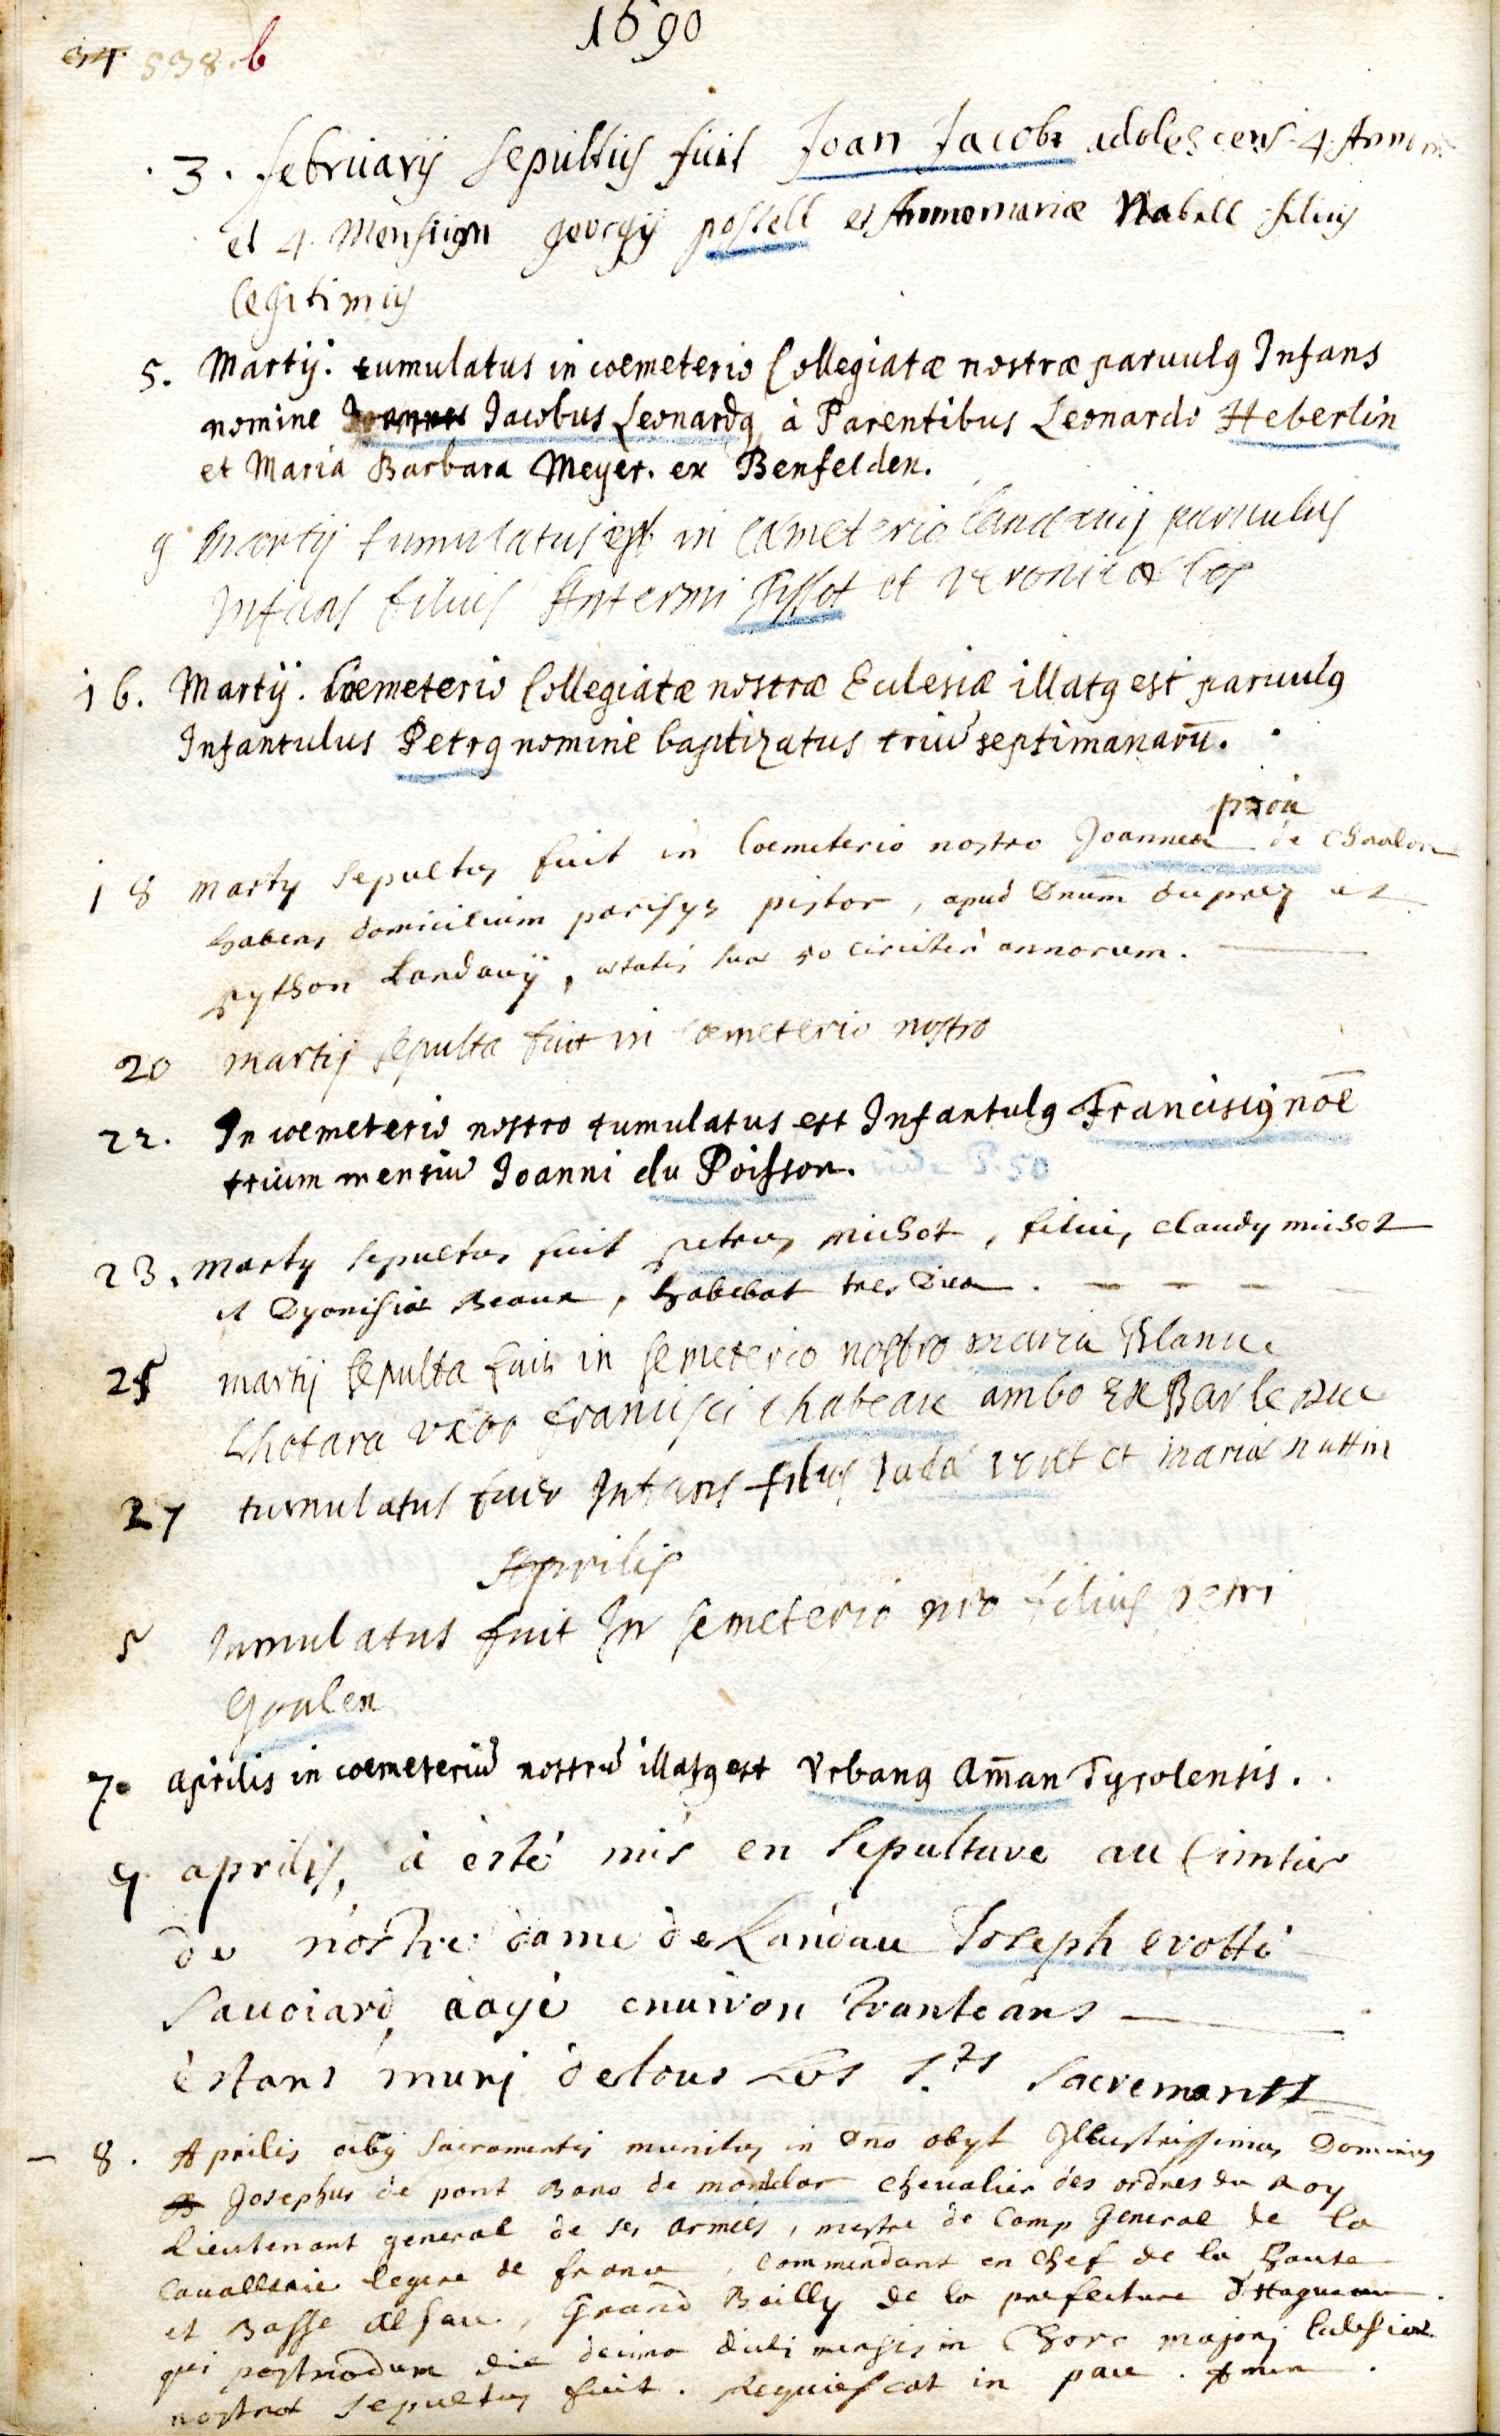 1690
34 538.b
3. februarij sepultus fuit Joan Jacobi adolescens 4 Annorum
et 4 Mensium georgij postell et Annemariæ Nabell filius
legitimus
5. Martij. tumulatus in coemeterio Collegiatæ nostræ paruulq Infans
nomine Jacobus Leonardq à Parentibus Leonardo Heberlin
et Maria Barbara Meyer. ex Benfelden.
9 Martij tumulatus est in Cæmeterio landavij paruulus
Infans filius Antermi Pissot et veronicæ
16. Martij. Coemeterio Collegiatæ nostræ Eclesiæ illatq est paruulq
Infantulus Petrq nomine baptizatus triū septimanarū.
prou
18 martij sepultus fuit in Coemeterio nostro Joannes de Chaalon
habens domicilium parisys pistor, apud Dnum duprez at
python Landavij, ætatis suæ 50 circiter annorum.
20 martij sepulta fuit in Cæmeterio nostro
22. In coemeterio nostro tumulatus est Infantulq Franciscq nōe
trium mensiū Joanni du Poisson. vide P. 50
23. martij sepultus fuit petrus michot, filius claudy michot
et Dyonisiæ Beaux, habebat tres Dies.
25 martij sepulta fuit in semeterio nostro maria Blanue
Lhotara uxor francisci chabeaux ambo Ex Barleduc
27 tumulatus fuit Infans filius Juda vout et mariæ nuttin
Aprilis
5 tumulatus fuit In semeterio nro filius petri
Goulen
7. aprilis in coemeteriū nostrū illatq est Vrbanq Am̄an Tyrolensis.
9 aprilis, à èsté mis en Sepulture au Cimtier
de nostre dame de Landau Joseph erotti
Sauoiard, aagé enuiron trante ans
èstans muni detous Les S.ts Sacremants
8. Aprilis oibq sacramentis munitus in Dno obyt Illustrissimus Dominus
Josephus de pont Bans de mondelar chevalier des ordres du Roy
Lieutenant general de ses armées, mestre de Camp General de la
Cavallerie legere de france, Commendant en chef de la haute
et Basse Alsace, Grand Bailly de la prefecture d'Haguenau.
qui postmodum die decima dicti mensis in Choro majori Ecclesiæ
nostræ sepultus fuit. Requiescat in pace. Amen.